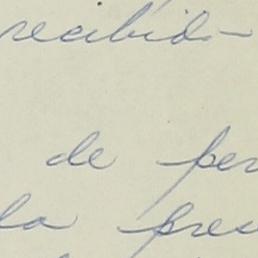 recibido
de per
la pres